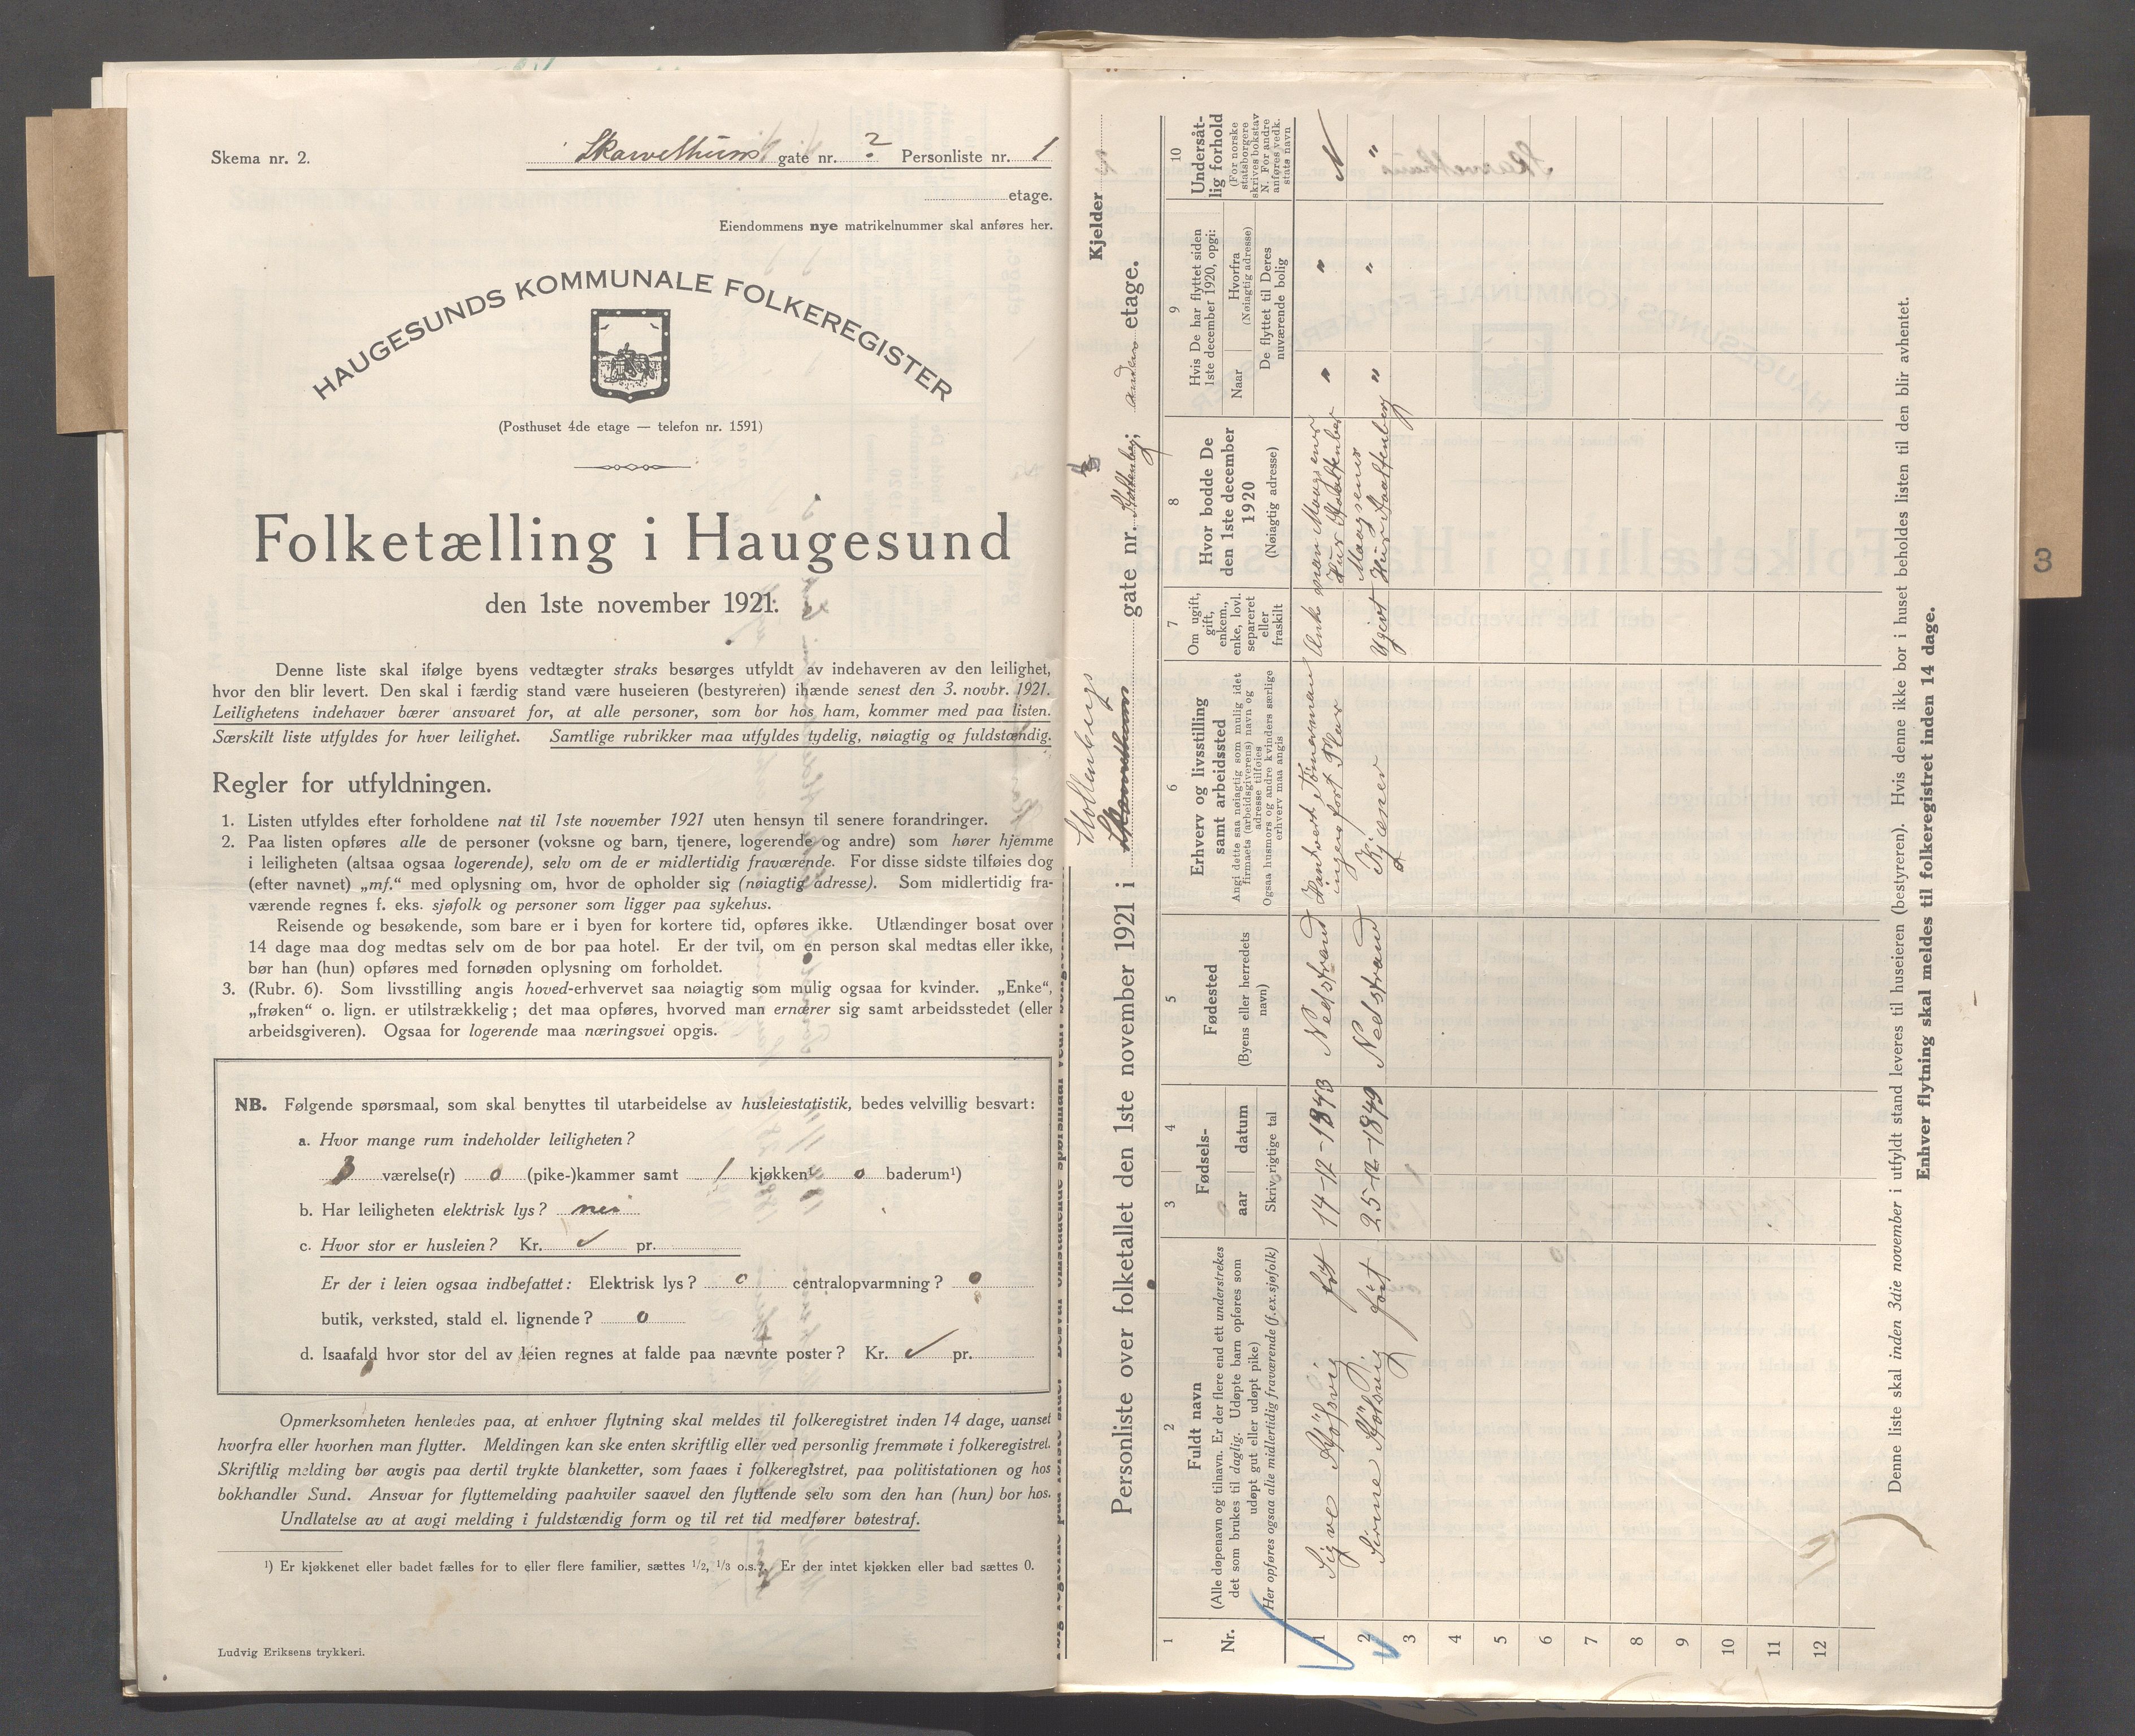 Skema nr. 2.
Skarvethuns gate nr. ? Personliste nr. 1
etage.
Eiendommens nye matrikelnummer skal anføres her.
HAUGESUNDS KOMMUNALE FOLKEREGISTER
(Posthuset 4de etage — telefon nr. 1591)
Folketælling i Haugesund
den 1ste november 1921.
Denne liste skal ifølge byens vedtægter straks besørges utfyldt av indehaveren av den leilighet,
hvor den blir levert. Den skal i færdig stand være huseieren (bestyreren) ihænde senest den 3. novbr. 1921.
Leilighetens indehaver bærer ansvaret for, at alle personer, som bor hos ham, kommer med paa listen.
Særskilt liste utfyldes for hver leilighet. Samtlige rubrikker maa utfyldes tydelig, nøiagtig og fuldstændig.
Regler for utfyldningen.
1. Listen utfyldes efter forholdene nat til 1ste november 1921 uten hensyn til senere forandringer.
2. Paa listen opføres alle de personer (voksne og barn, tjenere, logerende og andre) som hører hjemme
i leiligheten (altsaa ogsaa logerende), selv om de er midlertidig fraværende. For disse sidste tilføies dog
(efter navnet) „mf.“ med oplysning om, hvor de opholder sig (nøiagtig adresse). Som midlertidig fra-
værende regnes f. eks. sjøfolk og personer som ligger paa sykehus.
Reisende og besøkende, som bare er i byen for kortere tid, opføres ikke. Utlændinger bosat over
14 dage maa dog medtas selv om de bor paa hotel. Er der tvil, om en person skal medtas eller ikke,
bør han (hun) opføres med fornøden oplysning om forholdet.
3. (Rubr. 6). Som livsstilling angis hoved-erhvervet saa nøiagtig som mulig ogsaa for kvinder. „Enke“,
„frøken“ o. lign. er utilstrækkelig; det maa opføres, hvorved man ernærer sig samt arbeidsstedet (eller
arbeidsgiveren). Ogsaa for logerende maa næringsvei opgis.
NB. Følgende spørsmaal, som skal benyttes til utarbeidelse av husleiestatistik, bedes velvillig besvart:
a. Hvor mange rum indeholder leiligheten?
3 værelse(r) 0 (pike-)kammer samt 1 kjøkken 0 baderum¹)
b. Har leiligheten elektrisk lys? nei
c. Hvor stor er husleien? Kr. pr.
Er der i leien ogsaa indbefattet: Elektrisk lys? 0 centralopvarmning? 0
butik, verksted, stald el. lignende? 0
d. Isaafald hvor stor del av leien regnes at falde paa nævnte poster? Kr. pr.
Opmerksomheten henledes paa, at enhver flytning skal meldes til folkeregistret inden 14 dage, uanset
hvorfra eller hvorhen man flytter. Meldingen kan ske enten skriftlig eller ved personlig fremmøte i folkeregistret.
Skriftlig melding bør avgis paa dertil trykte blanketter, som faaes i folkeregistret, paa politistationen og hos
bokhandler Sund. Ansvar for flyttemelding paahviler saavel den flyttende selv som den han (hun) bor hos.
Undlatelse av at avgi melding i fuldstændig form og til ret tid medfører bøtestraf.
¹) Er kjøkkenet eller badet fælles for to eller flere familier, sættes 1/2, 1/3 o.s.v. Er der intet kjøkken eller bad sættes 0.
Ludvig Eriksens trykkeri.
Kjelder
Stoltenbergs
Personliste over folketallet den 1ste november 1921 i Skarvethuns gate nr. Stoltenberg; anden etage.
1
Nr.
2
Fuldt navn
(Alle døpenavn og tilnavn. Er der flere end ett understrekes
det som brukes til daglig. Udøpte barn opføres som
udøpt gut eller udøpt pike)
Her opføres ogsaa alle midlertidig fraværende (f.ex. sjøfolk)
3 4
Fødsels-
aar datum
Skriv rigtige tal
5
Fødested
(Byens eller herredets
navn)
6
Erhverv og livsstilling
samt arbeidssted
Angi dette saa nøiagtig som mulig idet
firmaets (arbeidsgiverens) navn og
adresse tilføies
Ogsaa husmors og andre kvinders særlige
erhverv maa angis
7
Om ugift,
gift,
enkem.,
enke, lovl.
separeret
eller
fraskilt
8
Hvor bodde De
den 1ste december
1920
(Nøiagtig adresse)
9
Hvis De har flyttet siden
1ste december 1920, opgi:
Naar
Hvorfra
(Nøiagtig adresse)
De flyttet til Deres
nuværende bolig
10
Undersåt-
lig forhold
(For norske
statsborgere
skrives bokstav
N. For andre
anføres vedk.
stats navn
1 Sigve født 14-12-1843 Nedstrand Tømermand Enk " " N
2 født 25-12-1849 Nedstrand Ugivt " " "
3
4
5
6
7
8
9
10
11
12
Denne liste skal inden 3die november i utfyldt stand leveres til huseieren (bestyreren). Hvis denne ikke bor i huset beholdes listen til den blir avhentet.
Enhver flytning skal meldes til folkeregistret inden 14 dage.
3